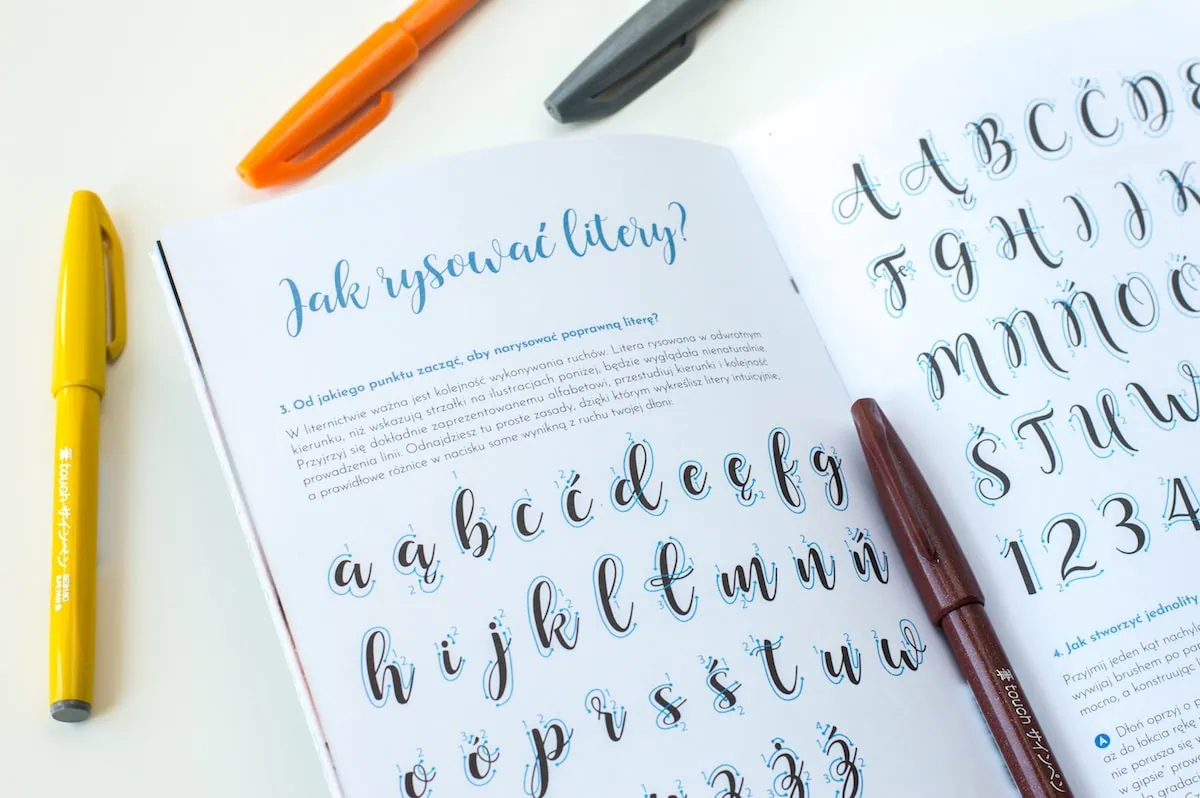 Jak rysować litery?
3. Od jakiego punktu zacząć, aby narysować poprawną literę?
W liternictwie ważna jest kolejność wykonywania ruchów. Litera rysowana w odwrotnym
kierunku, niż wskazują strzałki na ilustracjach poniżej, będzie wyglądała nienaturalnie.
Przyjrzyj się dokładnie zaprezentowanemu alfabetowi, przestudiuj kierunki i kolejność
prowadzenia linii. Odnajdziesz tu proste zasady, dzięki którym wykreślisz litery intuicyjnie,
a prawidłowe różnice w nacisku same wynikną z ruchu twojej dłoni:
a ą b c ć d e ę f g
h i j k l ł m n ń
o ó p r s ś t u w
ż ź
A Ą B C Ć D
F G H I J K
M N Ń O
Ś T U W
1 2 3 4
4. Jak stworzyć jednolity
Przyjmij jeden kąt
wywijaj brushem po
mocno, a konstruując
A Dłoń oprzyj o
aż do łokcia
nie porusza się
w gipsie"
touch サインペン
touch サインペン